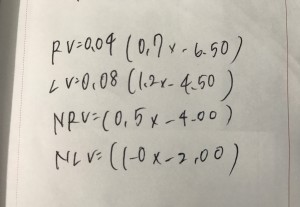 RV=0.04 (0,7x-6.50)
LV=0,08 (1,2x-4.50)
NRV=(0,5x-4.00)
NLV=((1-0x-2,00)